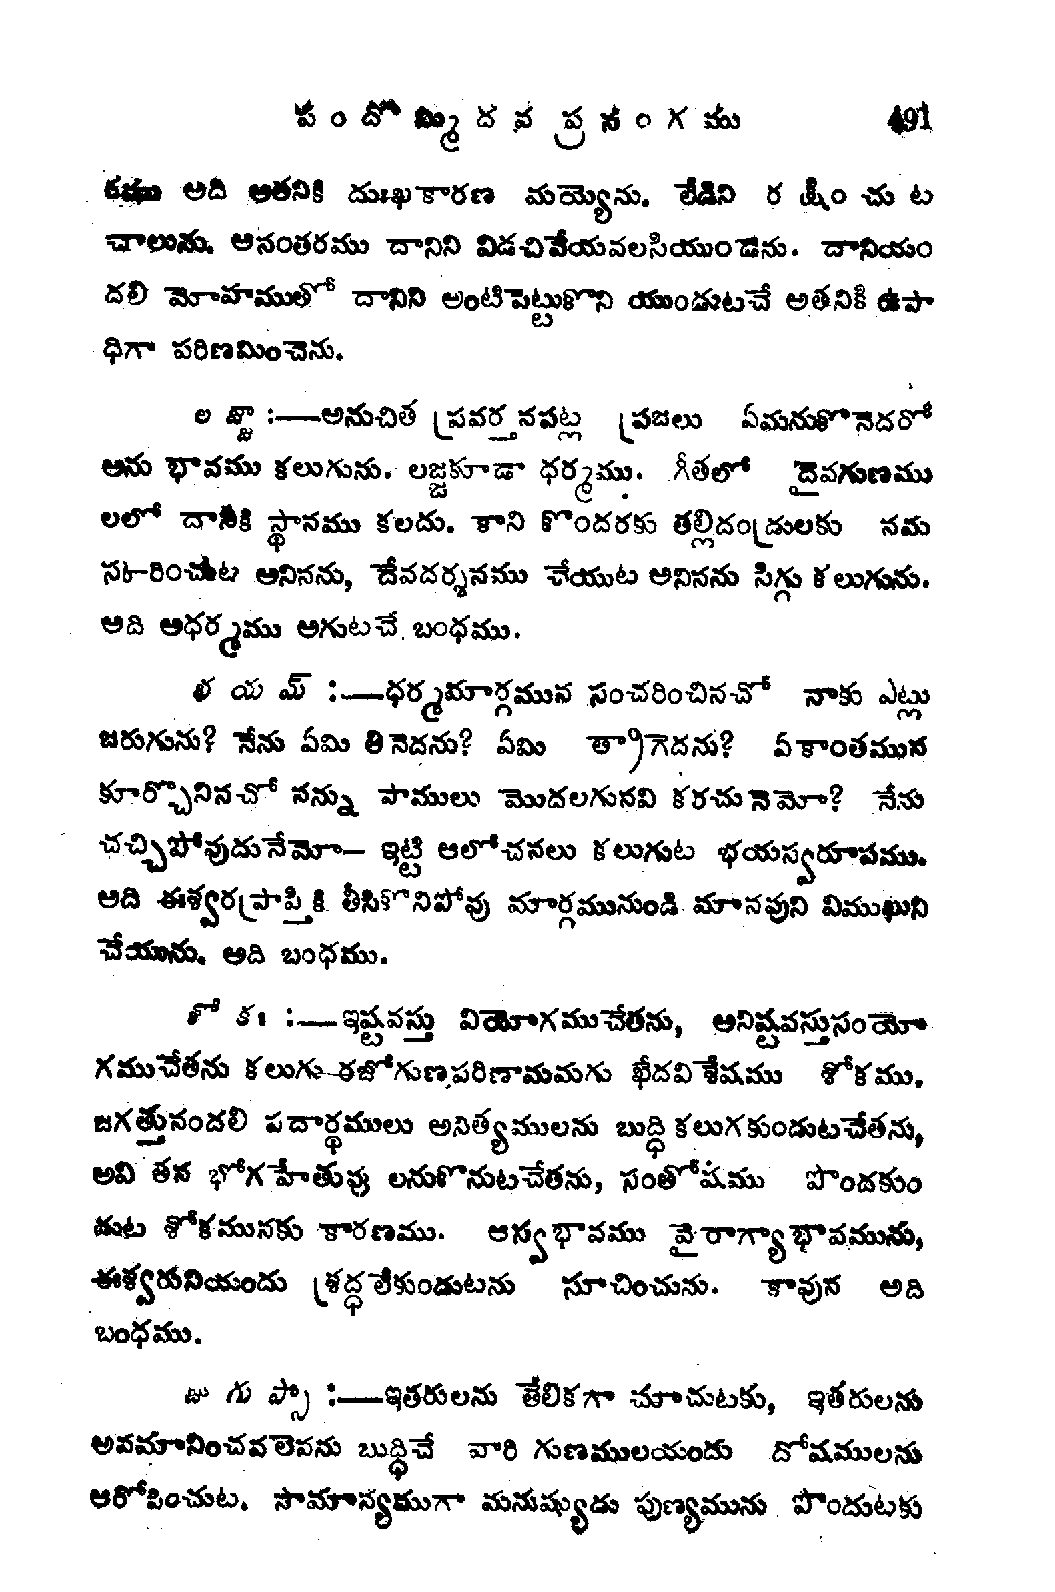 పందొమ్మిదవ ప్రసంగము 491
కథము అది అతనికి దుఃఖకారణ మయ్యెను. లేడిని రక్షించుట
చాలును. ఆనంతరము దానిని విడచివేయవలసియుండెను. దానియం
దలి మోహముతో దానిని అంటిపెట్టుకొని యుండుటచే అతనికి ఉపా
ధిగా పరిణమించెను.
లజ్జా :—అనుచిత ప్రవర్తనపట్ల ప్రజలు ఏమనుకొనెదరో
అను భావము కలుగును. లజ్జకూడా ధర్మము. గీతలో దైవగుణము
లలో దానికి స్థానము కలదు. కాని కొందరకు తల్లిదండ్రులకు నమ
స్కరించుట అనినను, దేవదర్శనము చేయుట అనినను సిగ్గు కలుగును.
అది అధర్మము అగుటచే బంధము.
భయమ్ :—ధర్మమార్గమున సంచరించినచో నాకు ఎట్లు
జరుగును? నేను ఏమి తినెదను? ఏమి త్రాగెదను? ఏకాంతమున
కూర్చొనినచో నన్ను పాములు మొదలగునవి కరచునెమో? నేను
చచ్చిపోవుదునేమో— ఇట్టి ఆలోచనలు కలుగుట భయస్వరూపము.
అది ఈశ్వరప్రాప్తికి తీసికొనిపోవు మార్గమునుండి మానవుని విముఖుని
చేయును. అది బంధము.
శోకః :—ఇష్టవస్తు వియోగముచేతను, అనిష్టవస్తుసంయో
గముచేతను కలుగు రజోగుణపరిణామమగు ఖేదవిశేషము శోకము.
జగత్తునందలి పదార్థములు అనిత్యములను బుద్ధి కలుగకుండుటచేతను,
అవి తన భోగహేతువు లనుకొనుటచేతను, సంతోషము పొందకుం
డుట శోకమునకు కారణము. ఆస్వభావము వైరాగ్యాభావమును,
ఈశ్వరునియందు శ్రద్ధలేకుండుటను సూచించును. కావున అది
బంధము.
జుగుప్సా :—ఇతరులను తేలికగా చూచుటకు, ఇతరులను
అవమానించవలెనను బుద్ధిచే వారి గుణములయందు దోషములను
ఆరోపించుట. సామాన్యముగా మనుష్యుడు పుణ్యమును పొందుటకు